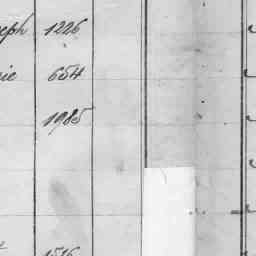 eph 1226
ie 654
1985
1516